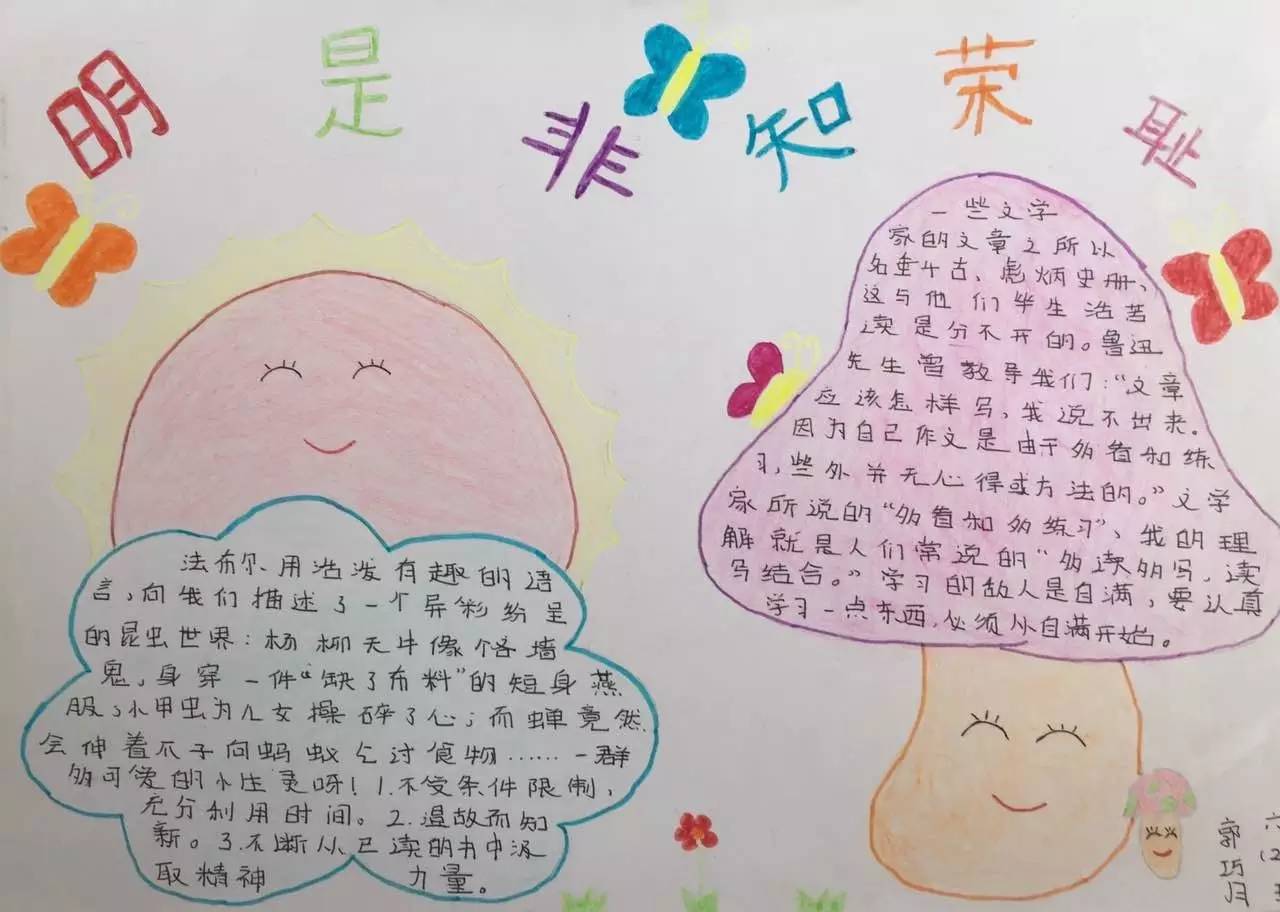 明是非知荣耻
法布尔用浩泼有趣的语
言,向我们描述了一个异彩纷呈
的昆虫世界:杨柳天牛像个吝墙
鬼,身穿一件“缺了布料”的短身燕
服;小甲虫为儿女操碎了心;而蝉竟然
会伸着爪子向蚂蚁乞讨食物……一群
多可爱的小生灵呀!1.不受条件限制,
充分利用时间。2.温故而知
新。3.不断从已读的书中汲
取精神力量。
一些文学
家的文章之所以
名垂千古、彪炳史册、
这与他们毕生浩苦
读是分不开的。鲁迅
先生曾教导我们:“文章
应该怎样写,我说不出来。
因为自己作文是由于多看和练
习,些外并无心得或方法的。”文学
家所说的“多看和多练习”、我的理
解就是人们常说的“多读多写,读
写结合。”学习的敌人是自满,要认真
学习一点东西,必须从自满开始。
六
(2
郭巧